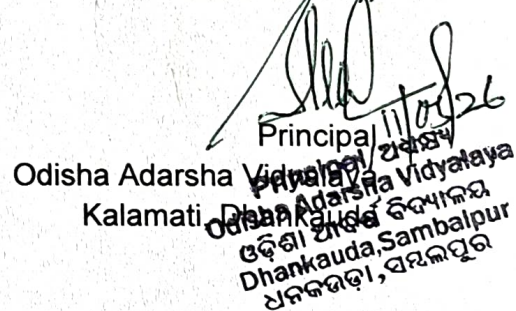 11/05/26
Principal
Odisha Adarsha Vidyalaya
Kalamati, Dhankauda
Principal ଅଧ୍ୟକ୍ଷ
Odisha Adarsha Vidyalaya
ଓଡ଼ିଶା ଆଦର୍ଶ ବିଦ୍ୟାଳୟ
Dhankauda, Sambalpur
ଧନକଉଡ଼ା, ସମ୍ବଲପୁର